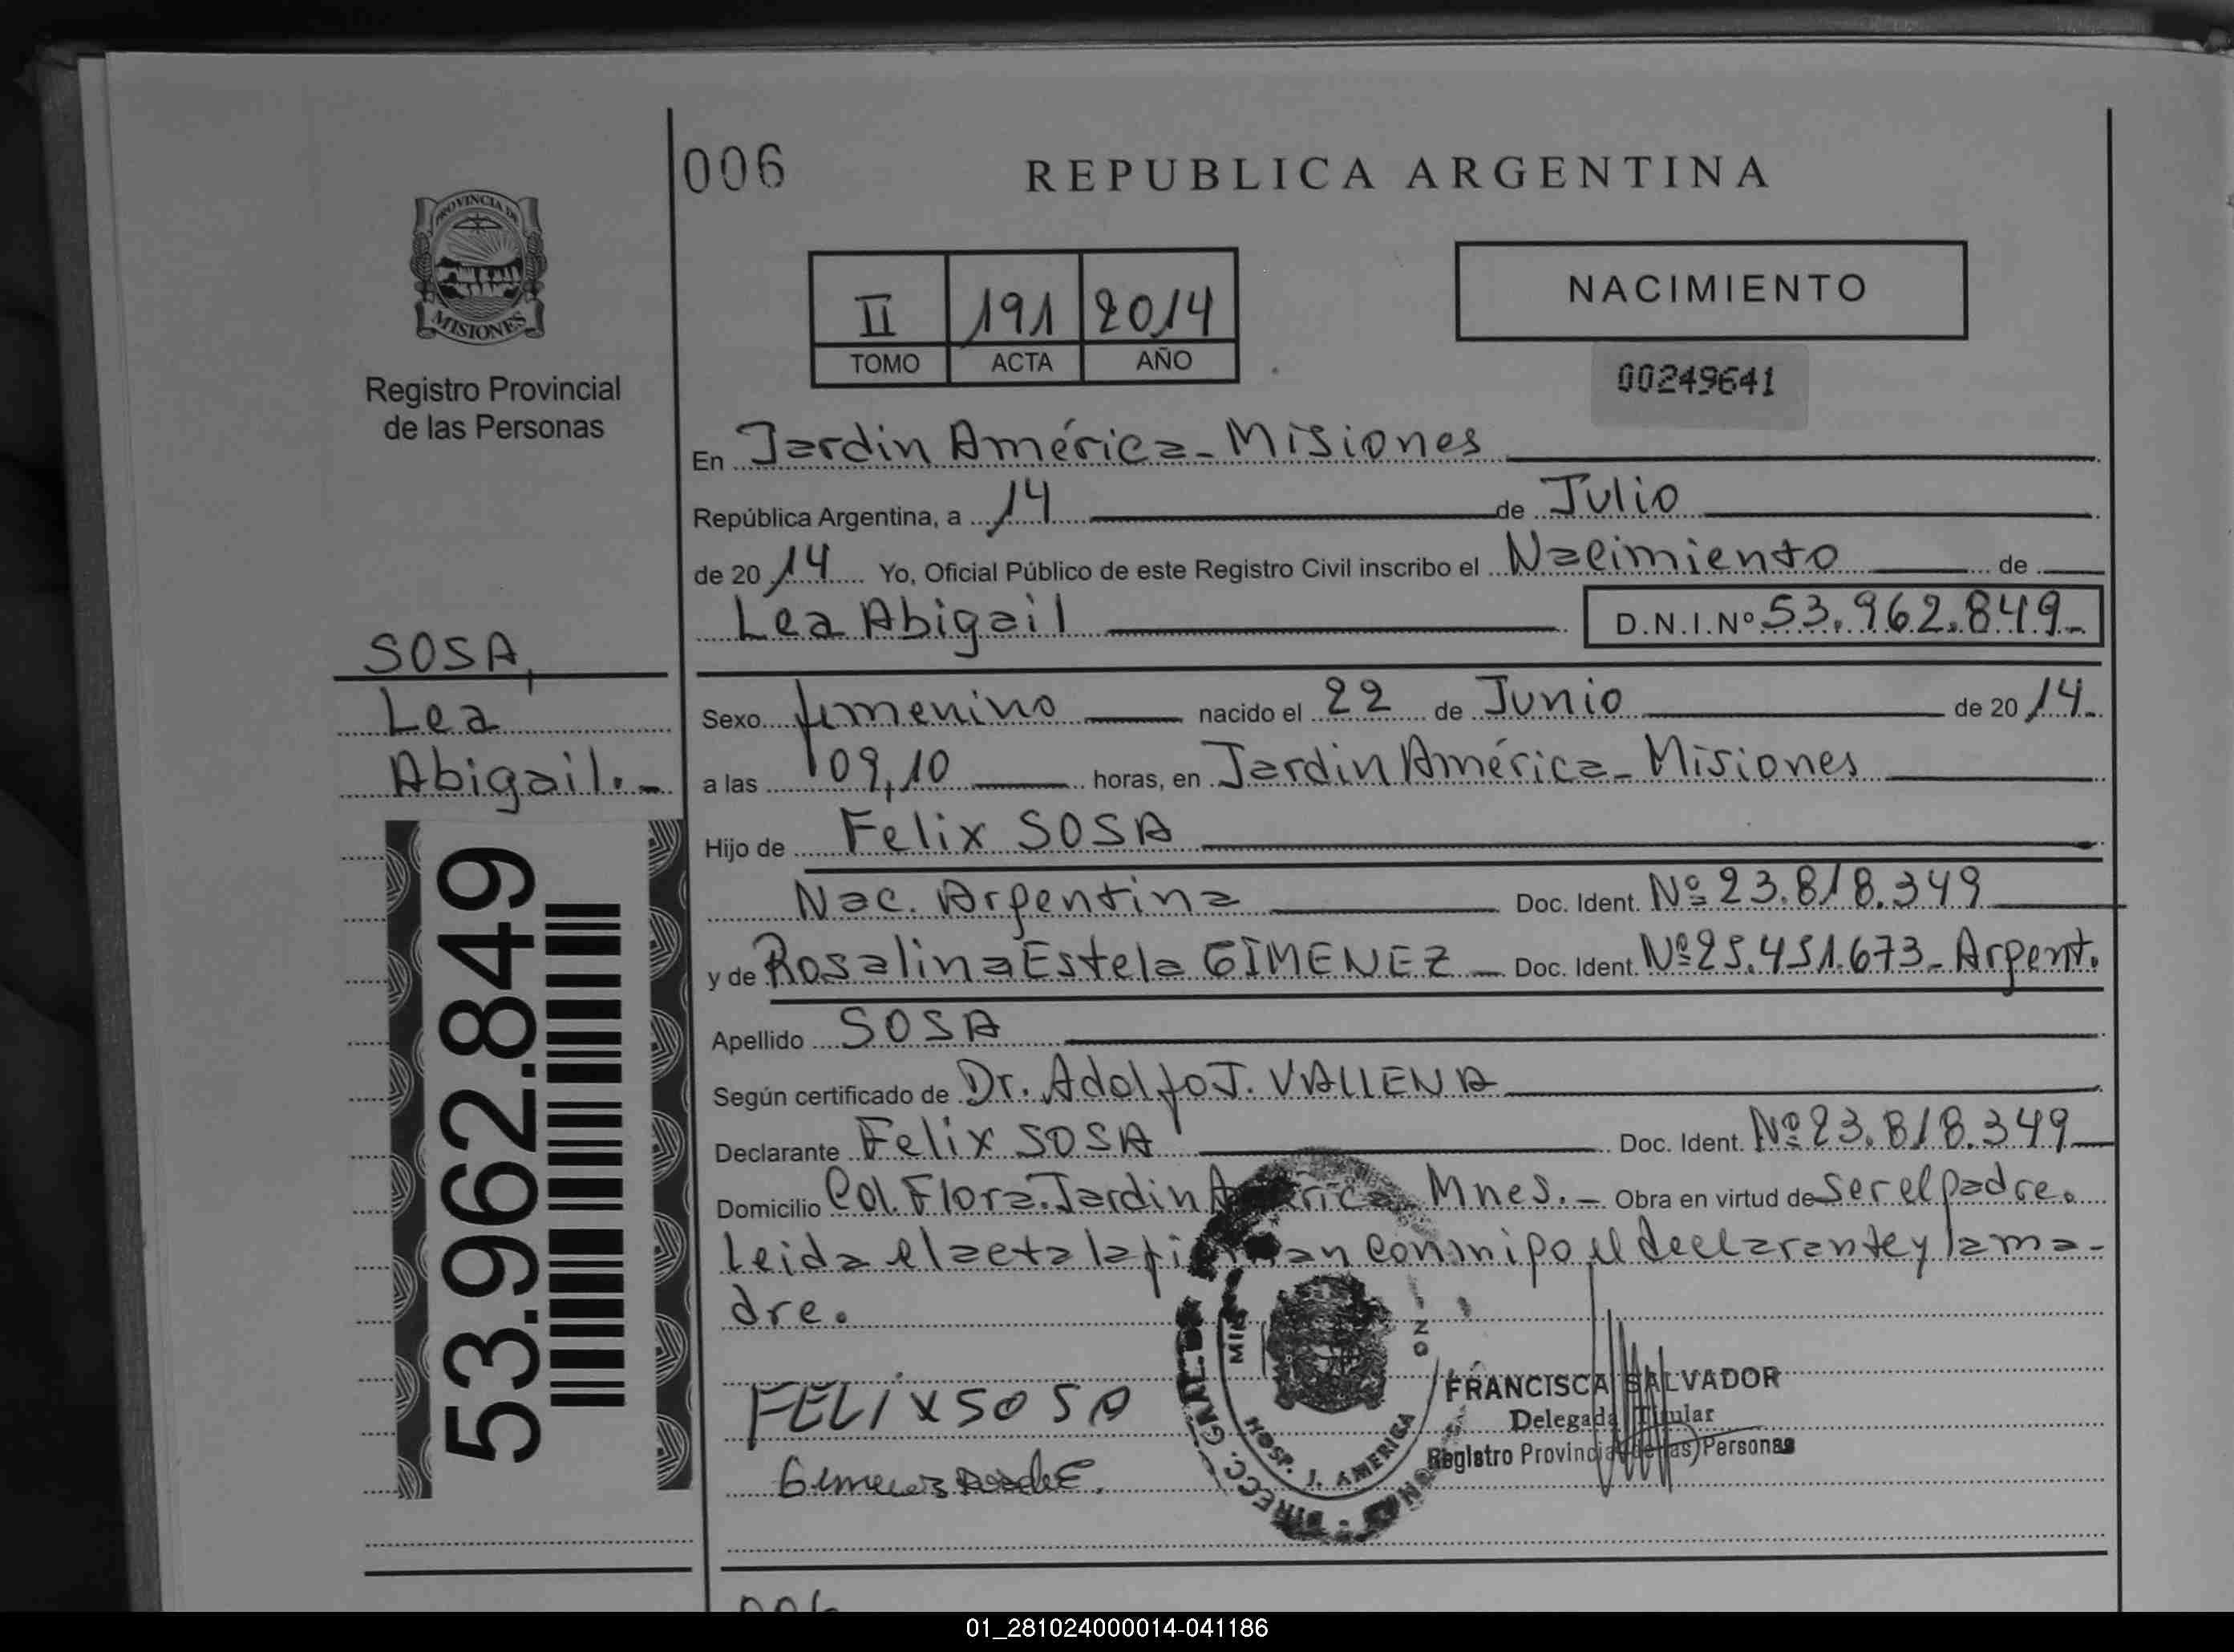 006
REPUBLICA ARGENTINA
PROVINCIA DE
MISIONES
Registro Provincial
de las Personas
II 191 2014
TOMO ACTA AÑO
NACIMIENTO
00249641
En Jardin América - Misiones
República Argentina, a 14 de Julio
de 2014 Yo, Oficial Público de este Registro Civil inscribo el Nacimiento de
Lea Abigail D.N.I.Nº 53.962.849-
SOSA,
Lea
Abigail.-
Sexo femenino nacido el 22 de Junio de 2014.
a las 09,10 horas, en Jardin América - Misiones
Hijo de Felix SOSA
Nac. Argentina Doc. Ident. Nº 23.818.349
y de Rosalina Estela GIMENEZ - Doc. Ident. Nº 25.451.673 - Argent.
Apellido SOSA
Según certificado de Dr. Adolfo J. VALLENA
Declarante Felix SOSA Doc. Ident. Nº 23.818.349
Domicilio Col. Flora. Jardin América Mnes. - Obra en virtud de ser el padre.
Leida el acta la firman conmigo el declarante y la ma-
dre.
53.962.849
FELIX SOSA
Gimenez E.
DIRECC. GRAL. DE
HOSP. J. AMERICA
FRANCISCA SALVADOR
Delegada Titular
Registro Provincial de las Personas
01_281024000014-041186